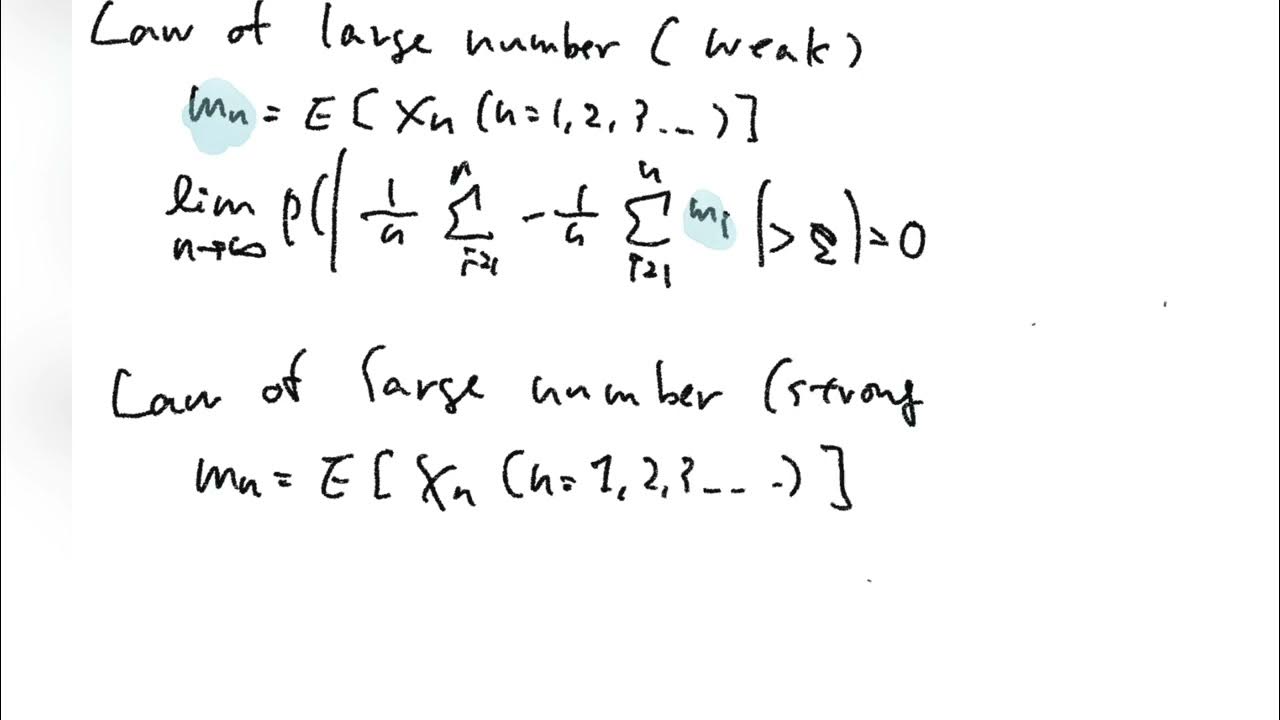 Law of large number (weak)
mₙ = E[Xₙ (n=1,2,3...)]
lim n→∞ P(| 1/n Σ i=1 n - 1/n Σ i=1 n mᵢ |> ε)=0
Law of large number (strong
mₙ = E[Xₙ (n=1,2,3....)]